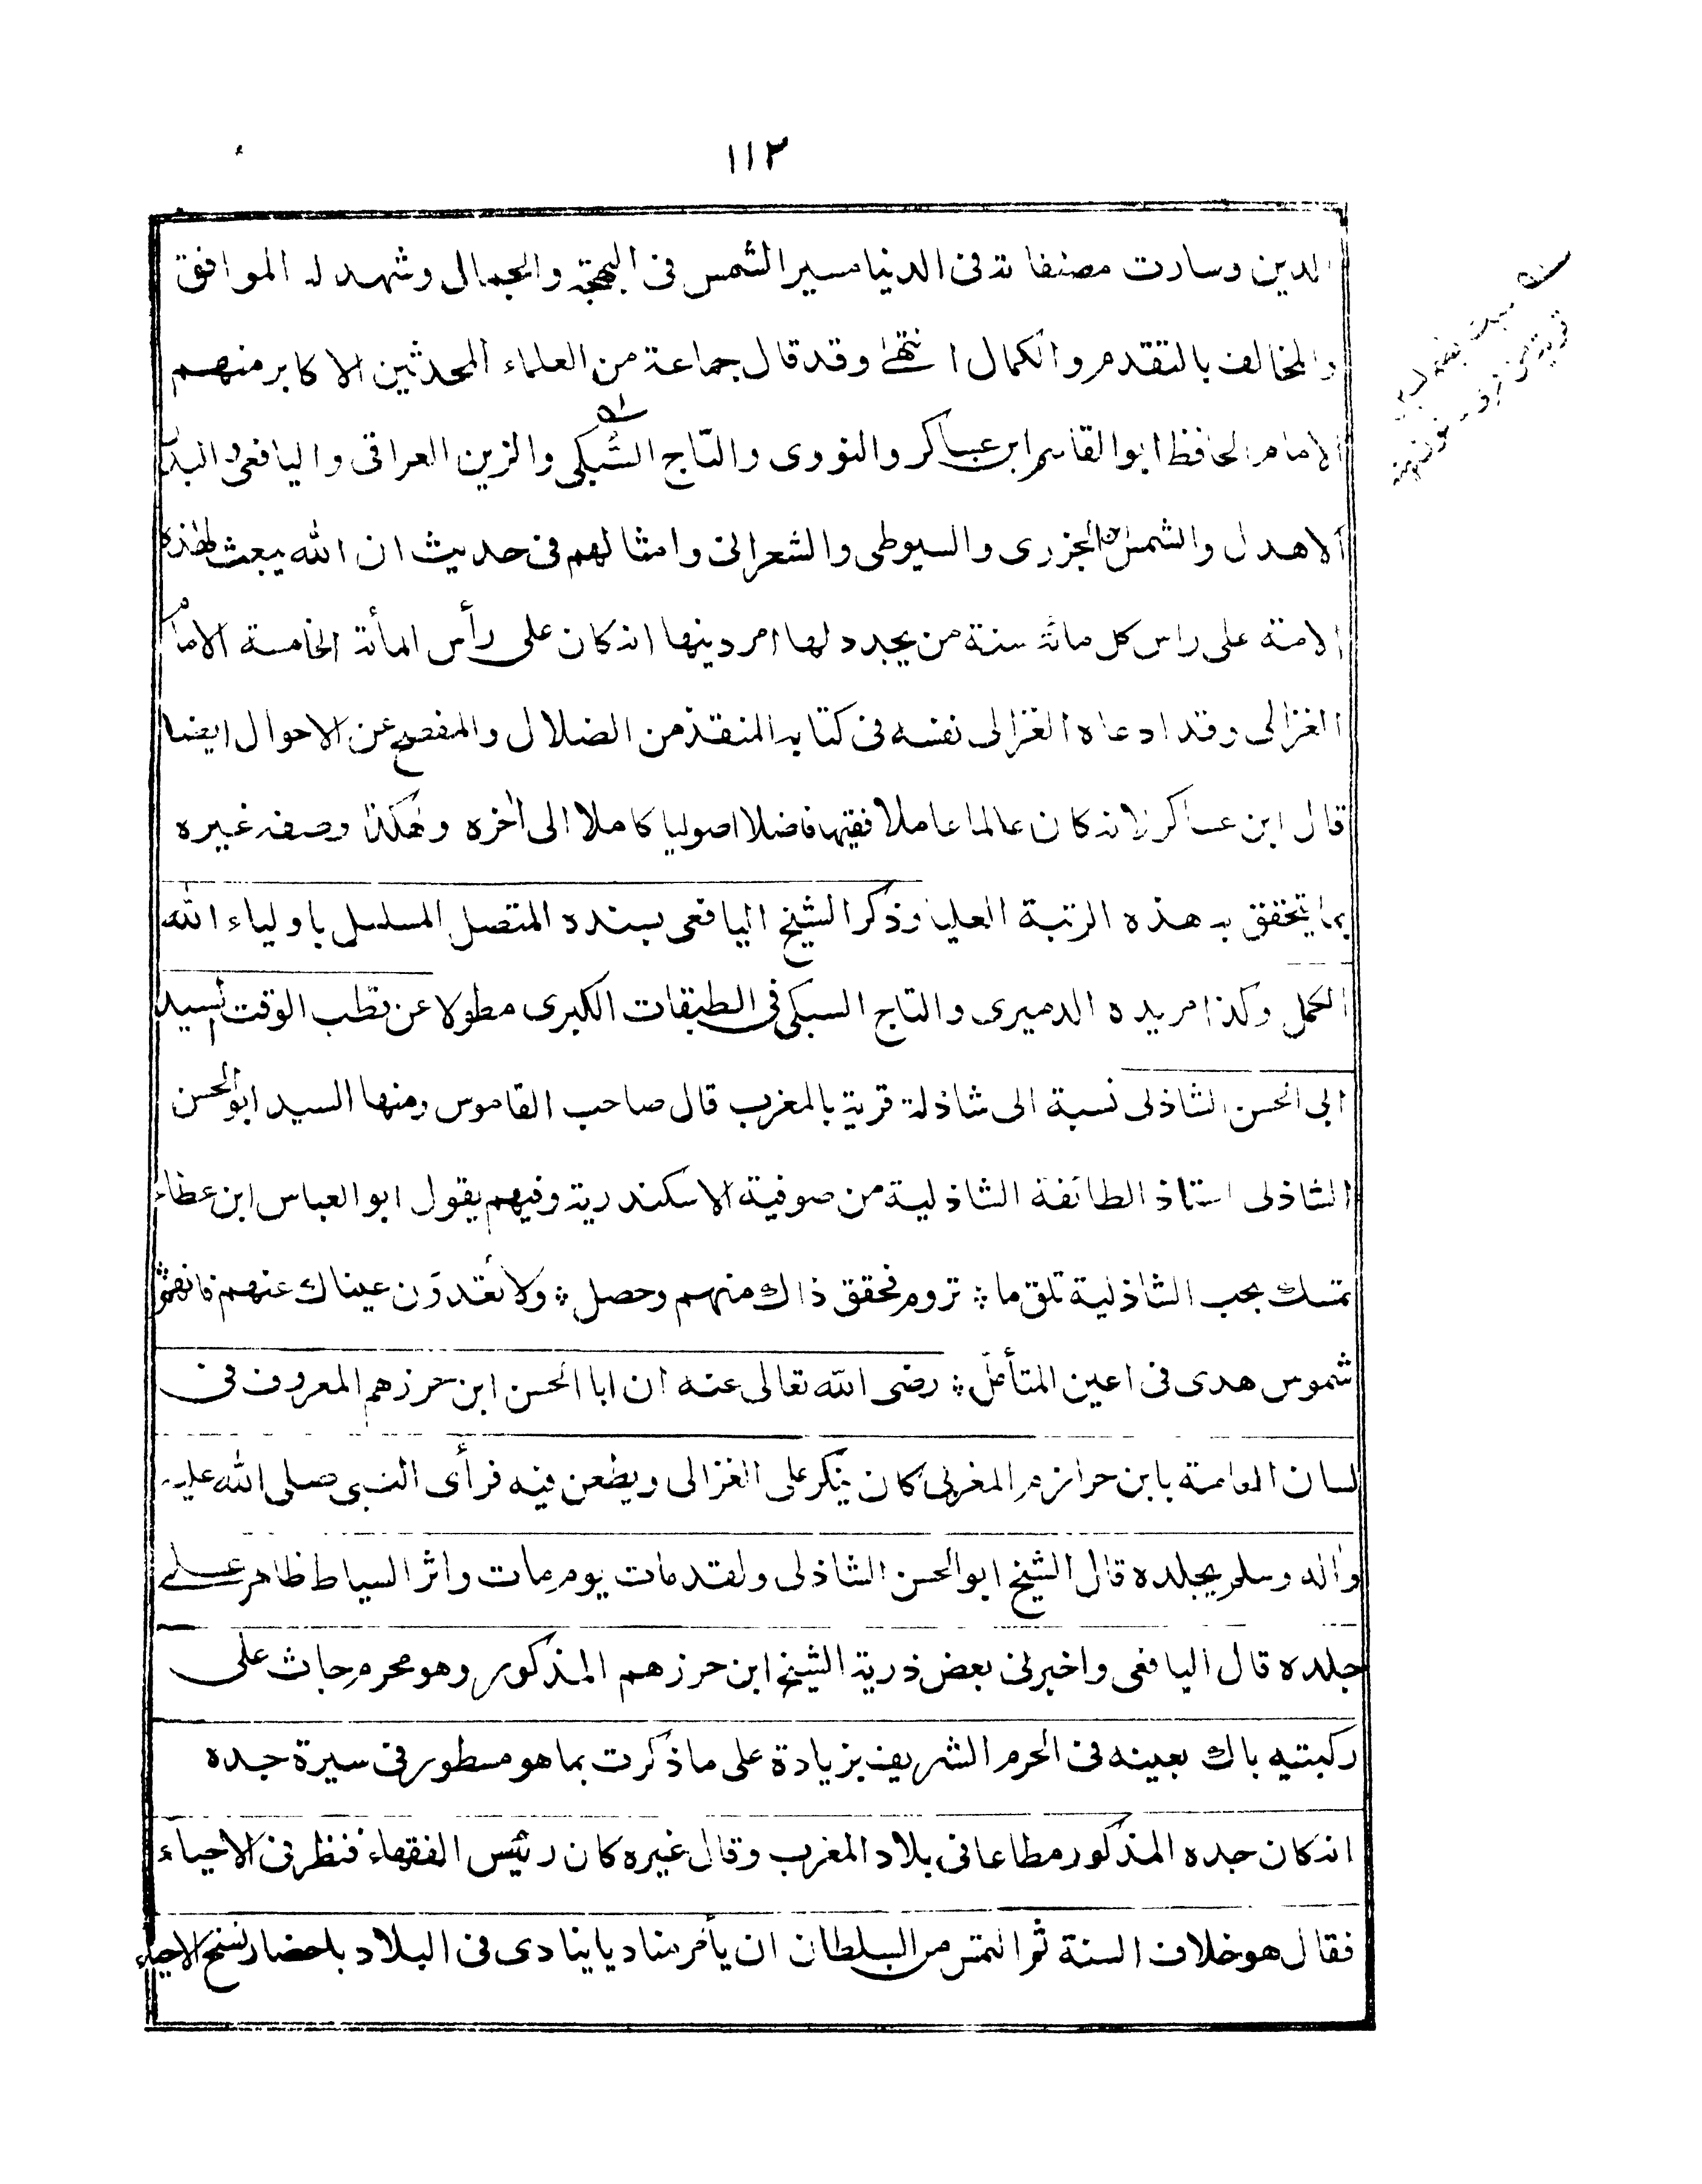 ١١٣
الدين وسارت مصنفاته فى الدنيا مسير الشمس فى البهجة والجمال وشهد له الموافق
والمخالف بالتقدم والكمال انتهى وقد قال جماعة من العلماء المحدثين الاكابر منهم
الامام الحافظ ابو القاسم ابن عساكر والنووى والتاج السُّبكى والزين العراقى واليافعى والبدر
الاهدل والشمس الجزرى والسيوطى والشعرانى وامثالهم فى حديث ان الله يبعث لهذه
الامة على راس كل مائة سنة من يجدد لها امر دينها انه كان على رأس المأئة الخامسة الامام
الغزالى وقد ادعاه الغزالى نفسه فى كتابه المنقذ من الضلال والمفصح عن الاحوال ايضا
قال ابن عساكر لانه كان عالما عاملا فقيها فاضلا اصوليا كاملا الى اٰخره وهٰكذا وصفه غيره
بما يتحقق به هذه الرتبة العليا وذكر الشيخ اليافعى بسنده المتصل المسلسل باولياء الله
الكمل وكذا مريده الدميرى والتاج السبكى فى الطبقات الكبرى مطولا عن قطب الوقت السيد
ابى الحسن الشاذلى نسبة الى شاذلة قرية بالمغرب قال صاحب القاموس ومنها السيد ابو الحسن
الشاذلى استاذ الطائفة الشاذلية من صوفية الاسكندرية وفيهم يقول ابو العباس ابن عطاء
تمسك بحب الشاذلية تلق ما ؞ تروم فحقق ذاك منهم وحصل ؞ ولا تعدون عيناك عنهم فانهمو
شموس هدى فى اعين المتأمل ؞ رضى الله تعالى عنه ان ابا الحسن ابن حرزهم المعروف فى
لسان العامة بابن حرازم المغربى كان ينكر على الغزالى ويطعن فيه فرأى النبى صلى الله عليه
واٰله وسلم يجلده قال الشيخ ابو الحسن الشاذلى ولقد مات يوم مات واثر السياط ظاهر على
جلده قال اليافعى واخبرنى بعض ذرية الشيخ ابن حرزهم المذكور وهو محرم جاث على
ركبتيه باك بعينه فى الحرم الشريف بزيادة على ما ذكرت بما هو مسطور فى سيرة جده
انه كان جده المذكور مطاعا فى بلاد المغرب وقال غيره كان رئيس الفقهاء فنظر فى الاحياء
فقال هو خلاف السنة ثم التمس من السلطان ان يأمر مناديا ينادى فى البلاد باحضار نسخ الاحياء